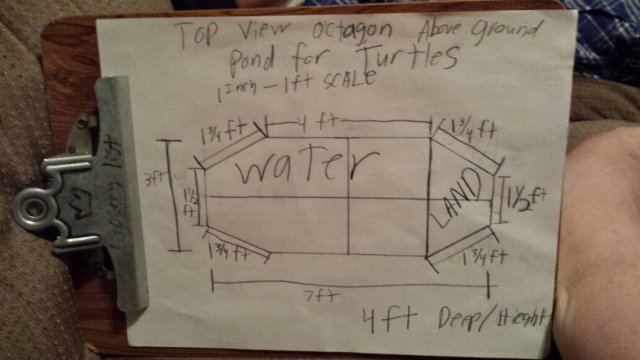 Top View Octagon Above ground
Pond for Turtles
1 Inch - 1ft SCALE
1 3/4 ft
4 ft
1 3/4 ft
3ft
water
1 1/2 ft
LAND
1 1/2 ft
1 3/4 ft
1 3/4 ft
7ft
4ft Deep/Hieght